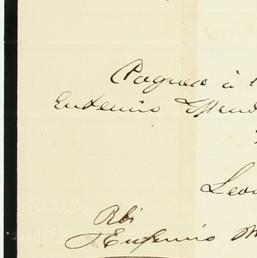 Pagues à
Eutemio Mend
Leo
Rbi
Eufemio M